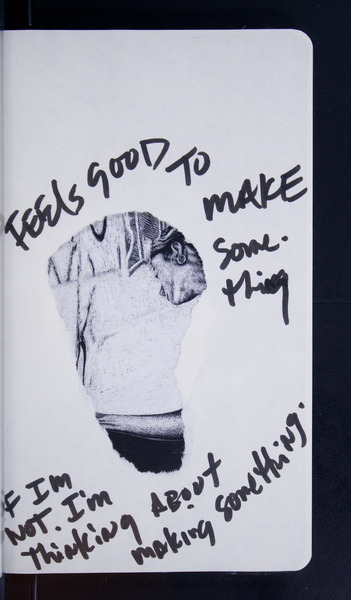 FEEls GOOD TO
MAKE
Some.
thing
F I'm
NOT. I'm
Thinking ABOUT
making something.